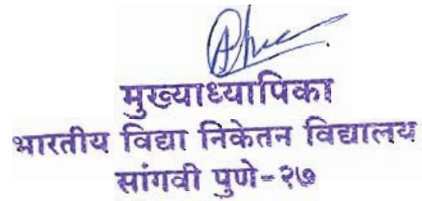 मुख्याध्यापिका
भारतीय विद्या निकेतन विद्यालय
सांगवी पुणे-२७